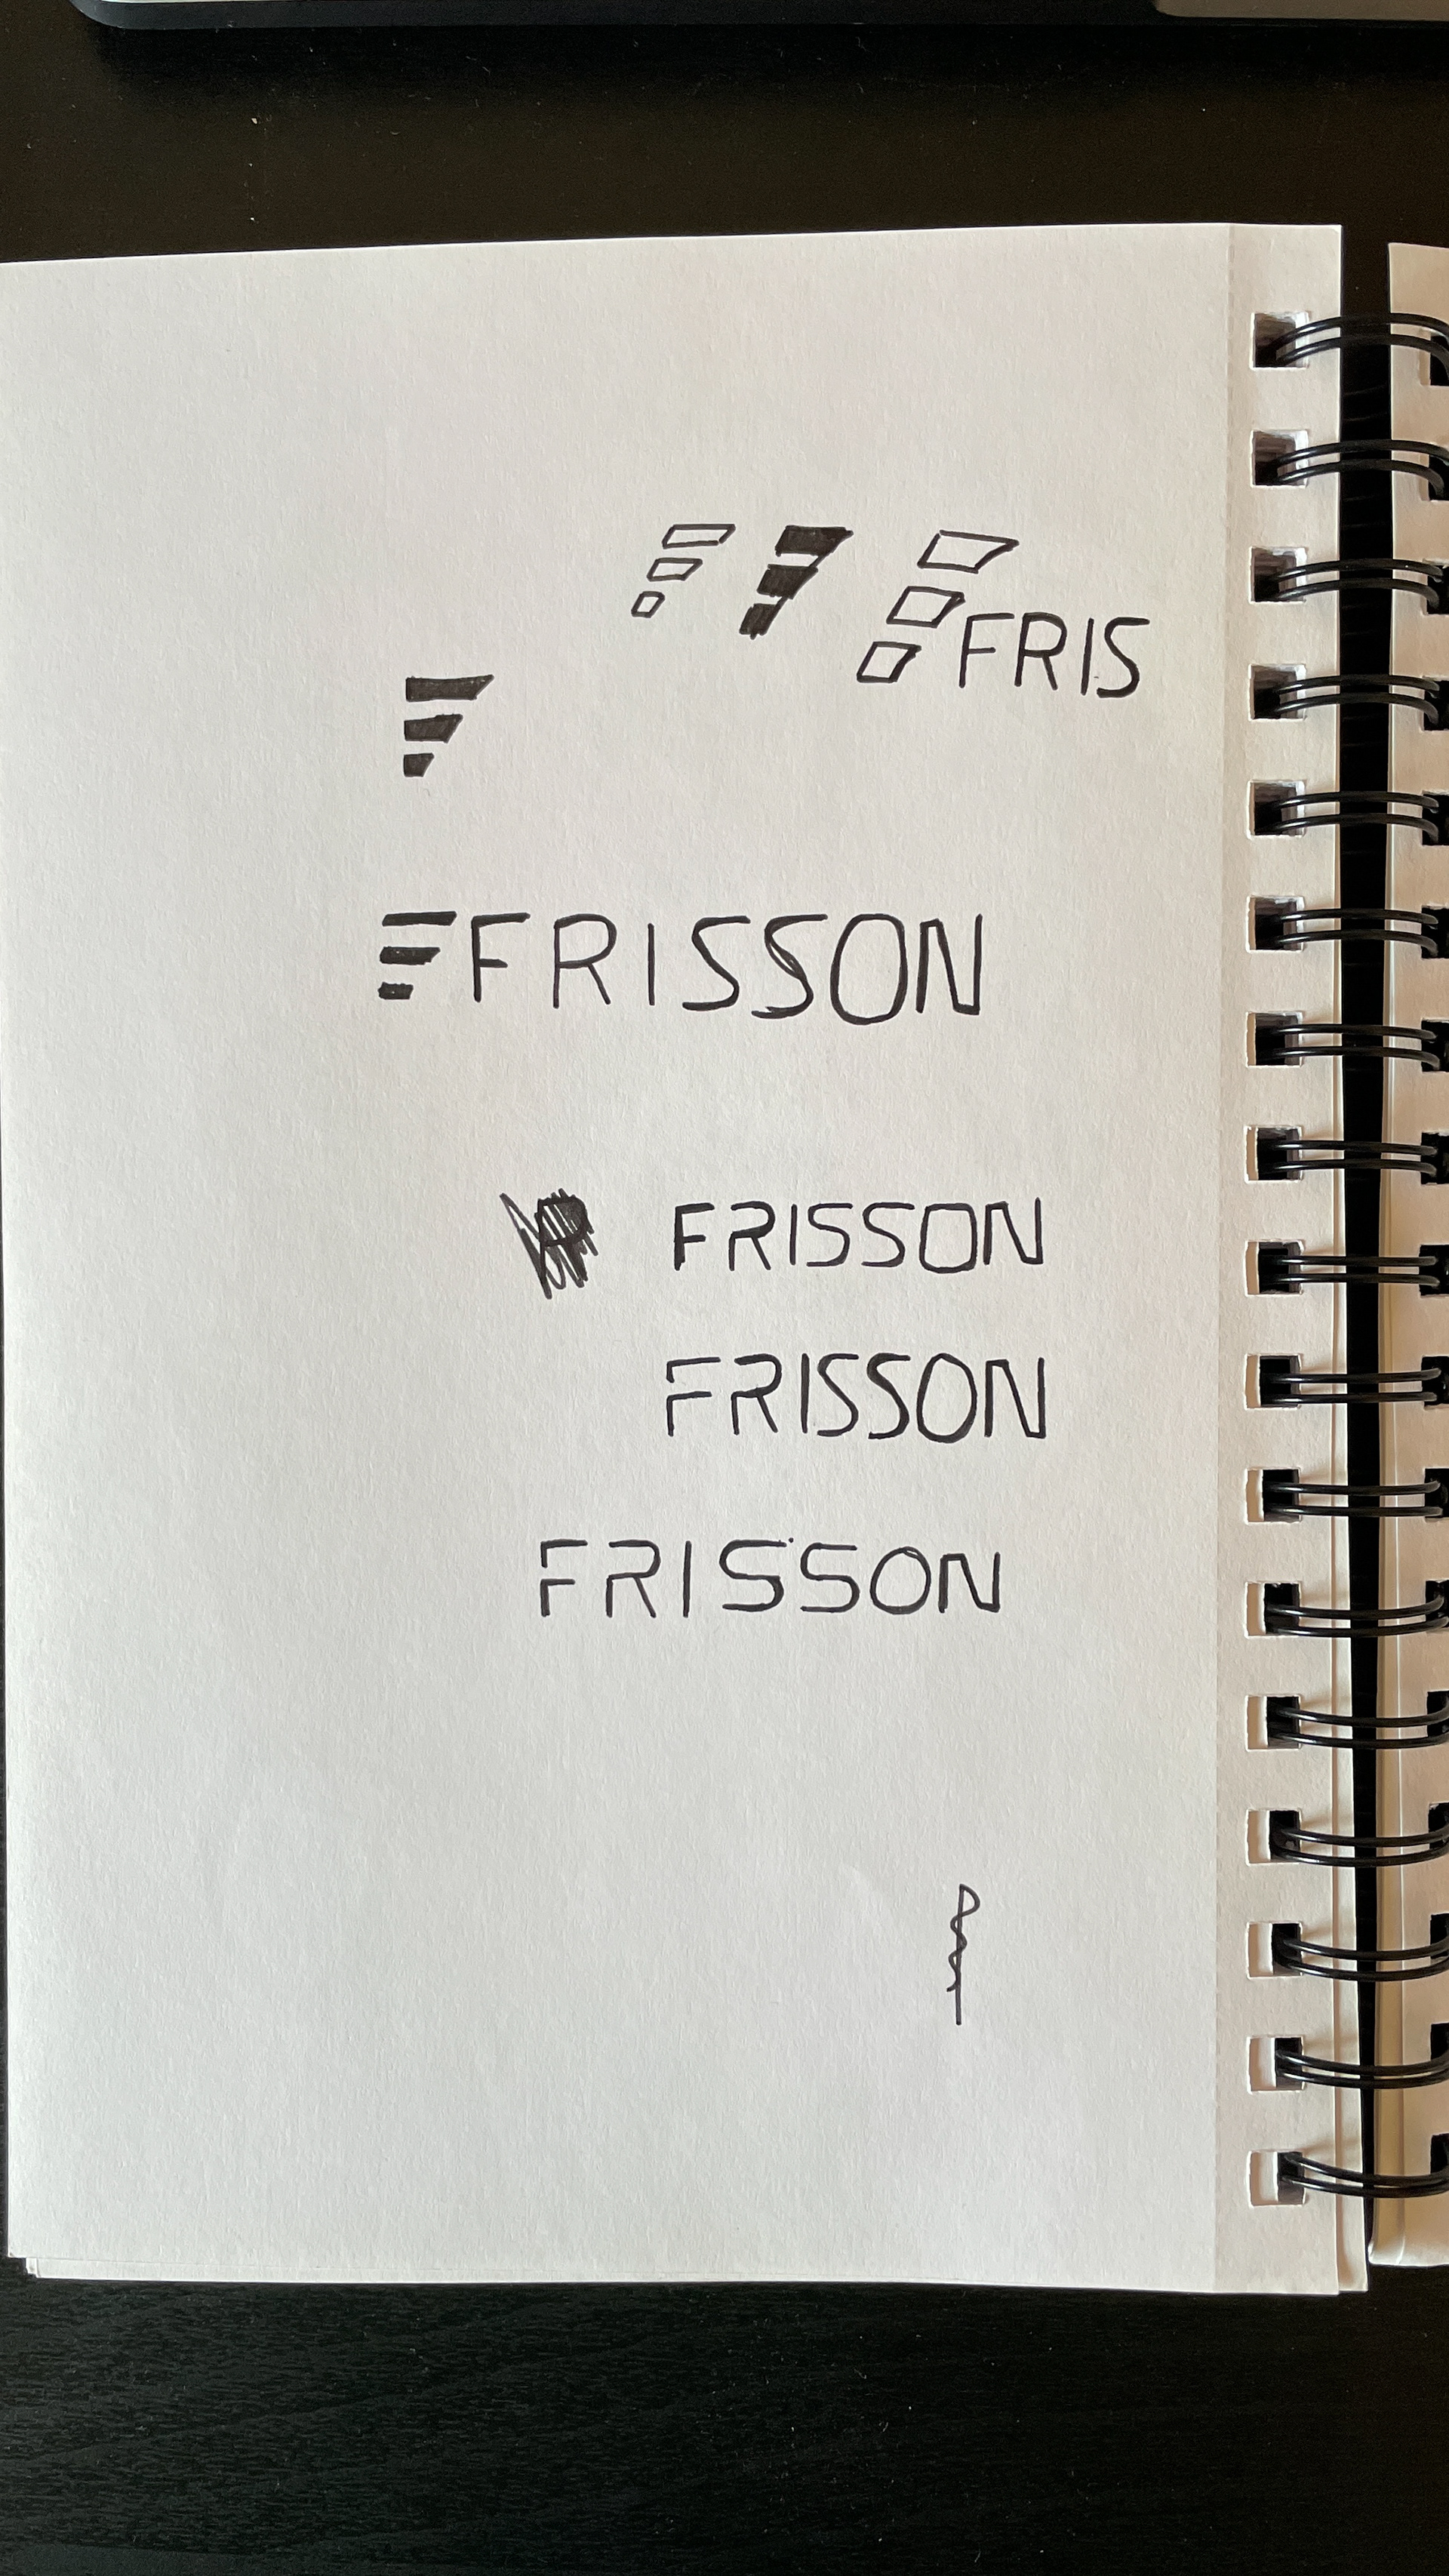 FRIS
FRISSON
FRISSON
FRISSON
FRISSON